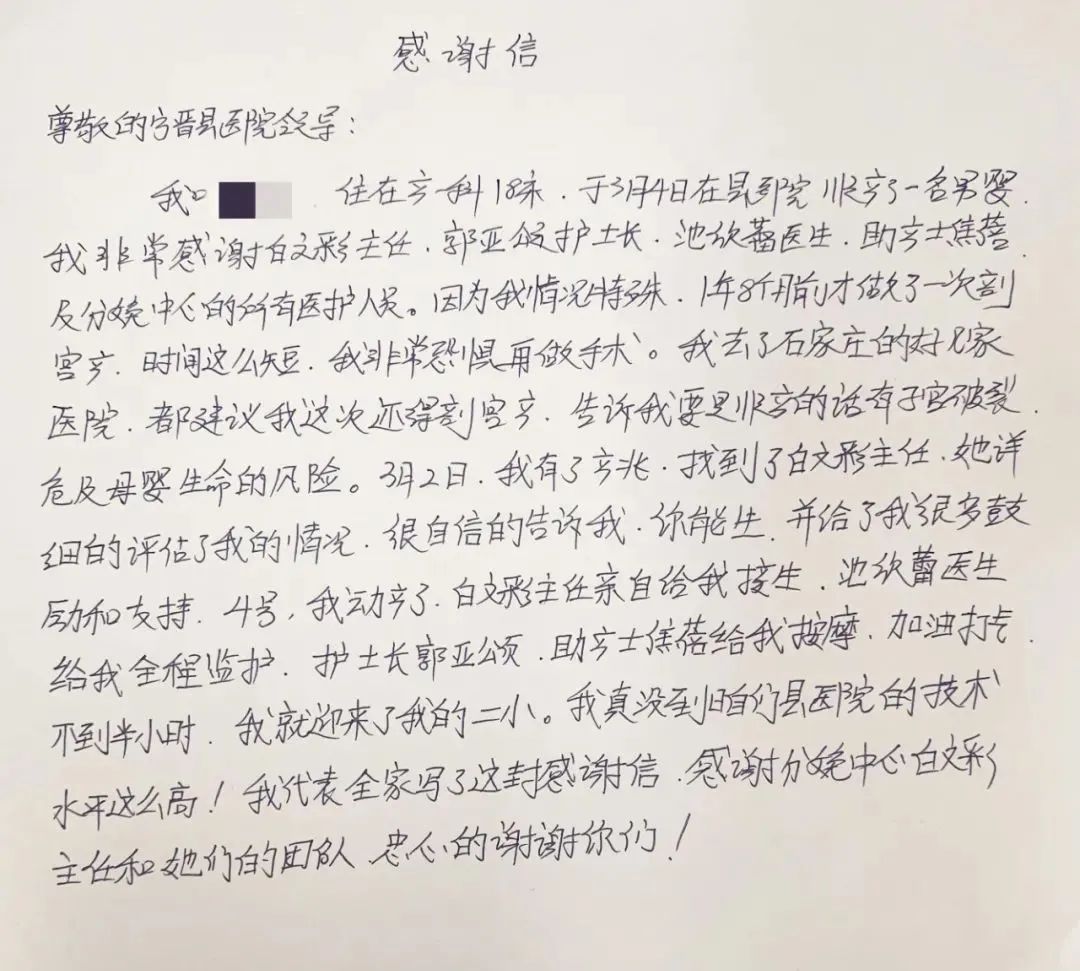 感谢信
尊敬的宁晋县医院领导：
我 住在产科18床，于3月4日在县医院顺产了一名男婴，
我非常感谢白文彩主任，郭亚颂护士长，池欣蕾医生，助产士焦蓓
及分娩中心的所有医护人员。因为我情况特殊，1年8个月前才做了一次剖
宫产，时间这么短，我非常恐惧再做手术。我去了石家庄的好几家
医院，都建议我这次还得剖宫产，告诉我要是顺产的话有子宫破裂，
危及母婴生命的风险。3月2日，我有了产兆，找到了白文彩主任，她详
细的评估了我的情况，很自信的告诉我，你能生，并给了我很多鼓
励和支持，4号，我动产了，白文彩主任亲自给我接生，池欣蕾医生
给我全程监护，护士长郭亚颂，助产士焦蓓给我按摩，加油打气，
不到半小时，我就迎来了我的二小。我真没到咱们县医院的技术
水平这么高！我代表全家写了这封感谢信，感谢分娩中心白文彩
主任和她们的团队，忠心的谢谢你们！